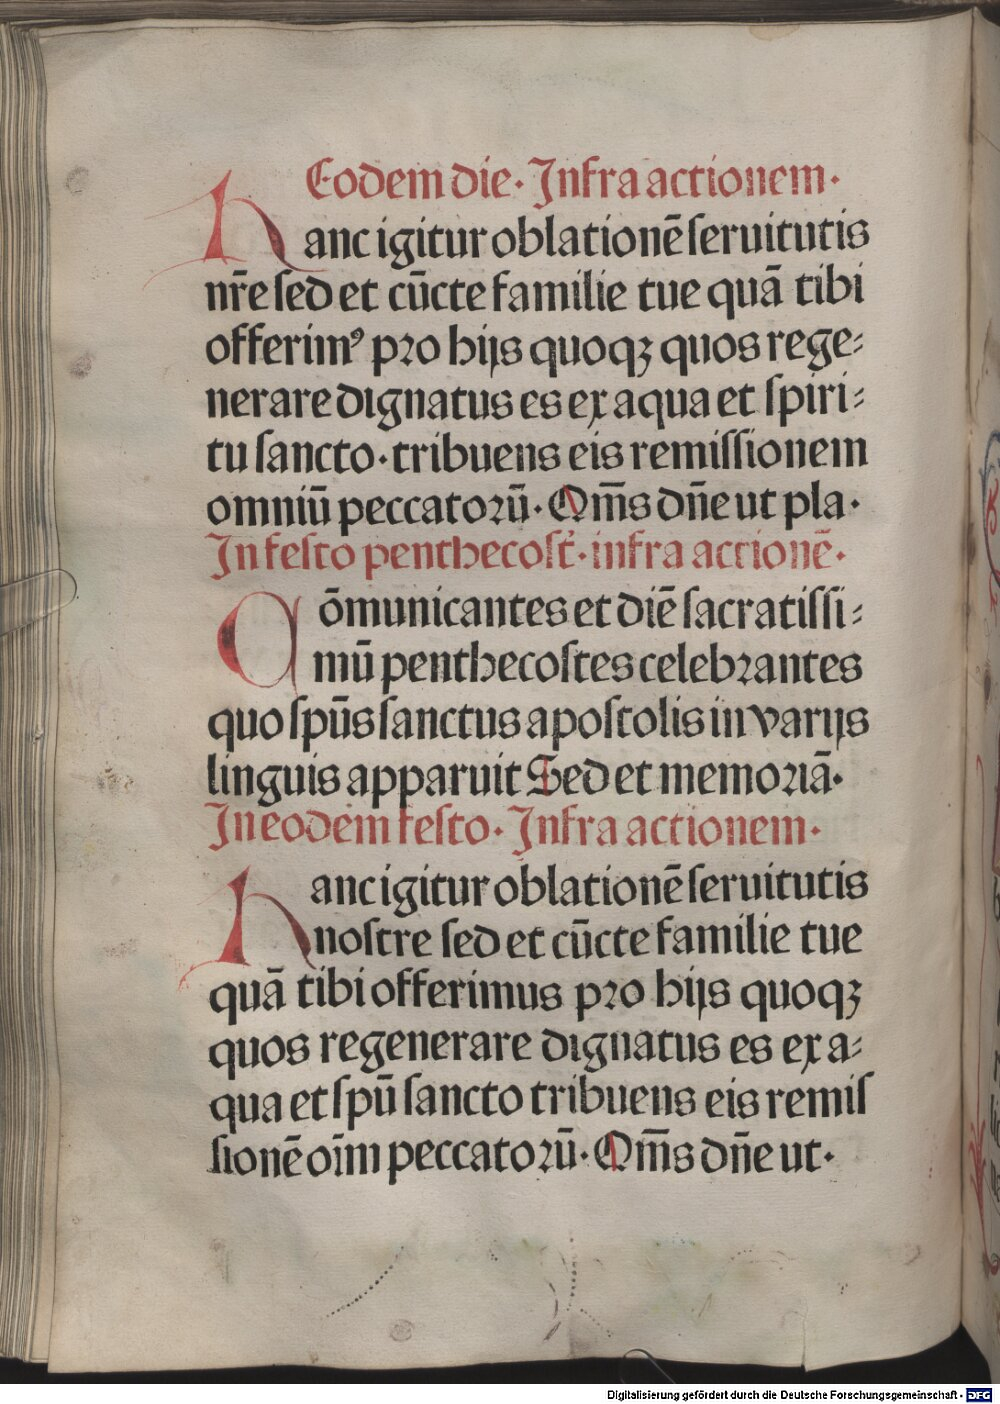 Eodem die· Infra actionem·
Hanc igitur oblationē ſeruitutis
nr̄e ſed et cūcte familie tue quā tibi
offerimꝰ pro hijs quoqꝫ quos rege⸗
nerare dignatus es ex aqua et ſpiri⸗
tu ſancto· tribuens eis remiſſionem
omniū peccatorū· Qm̄s dn̄e ut pla·
In feſto penthecoſt̄· infra actionē·
Cōmunicantes et diē ſacratiſſi⸗
mū penthecoſtes celebrantes
quo ſpūs ſanctus apoſtolis in varijs
linguis apparuit Sed et memoriā·
In eodem feſto· Infra actionem·
Hanc igitur oblationē ſeruitutis
noſtre ſed et cūcte familie tue
quā tibi offerimus pro hijs quoqꝫ
quos regenerare dignatus es ex a⸗
qua et ſpū ſancto tribuens eis remiſ
ſionē oīm peccatorū· Qm̄s dn̄e ut·
Digitalisierung gefördert durch die Deutsche Forschungsgemeinschaft - DFG